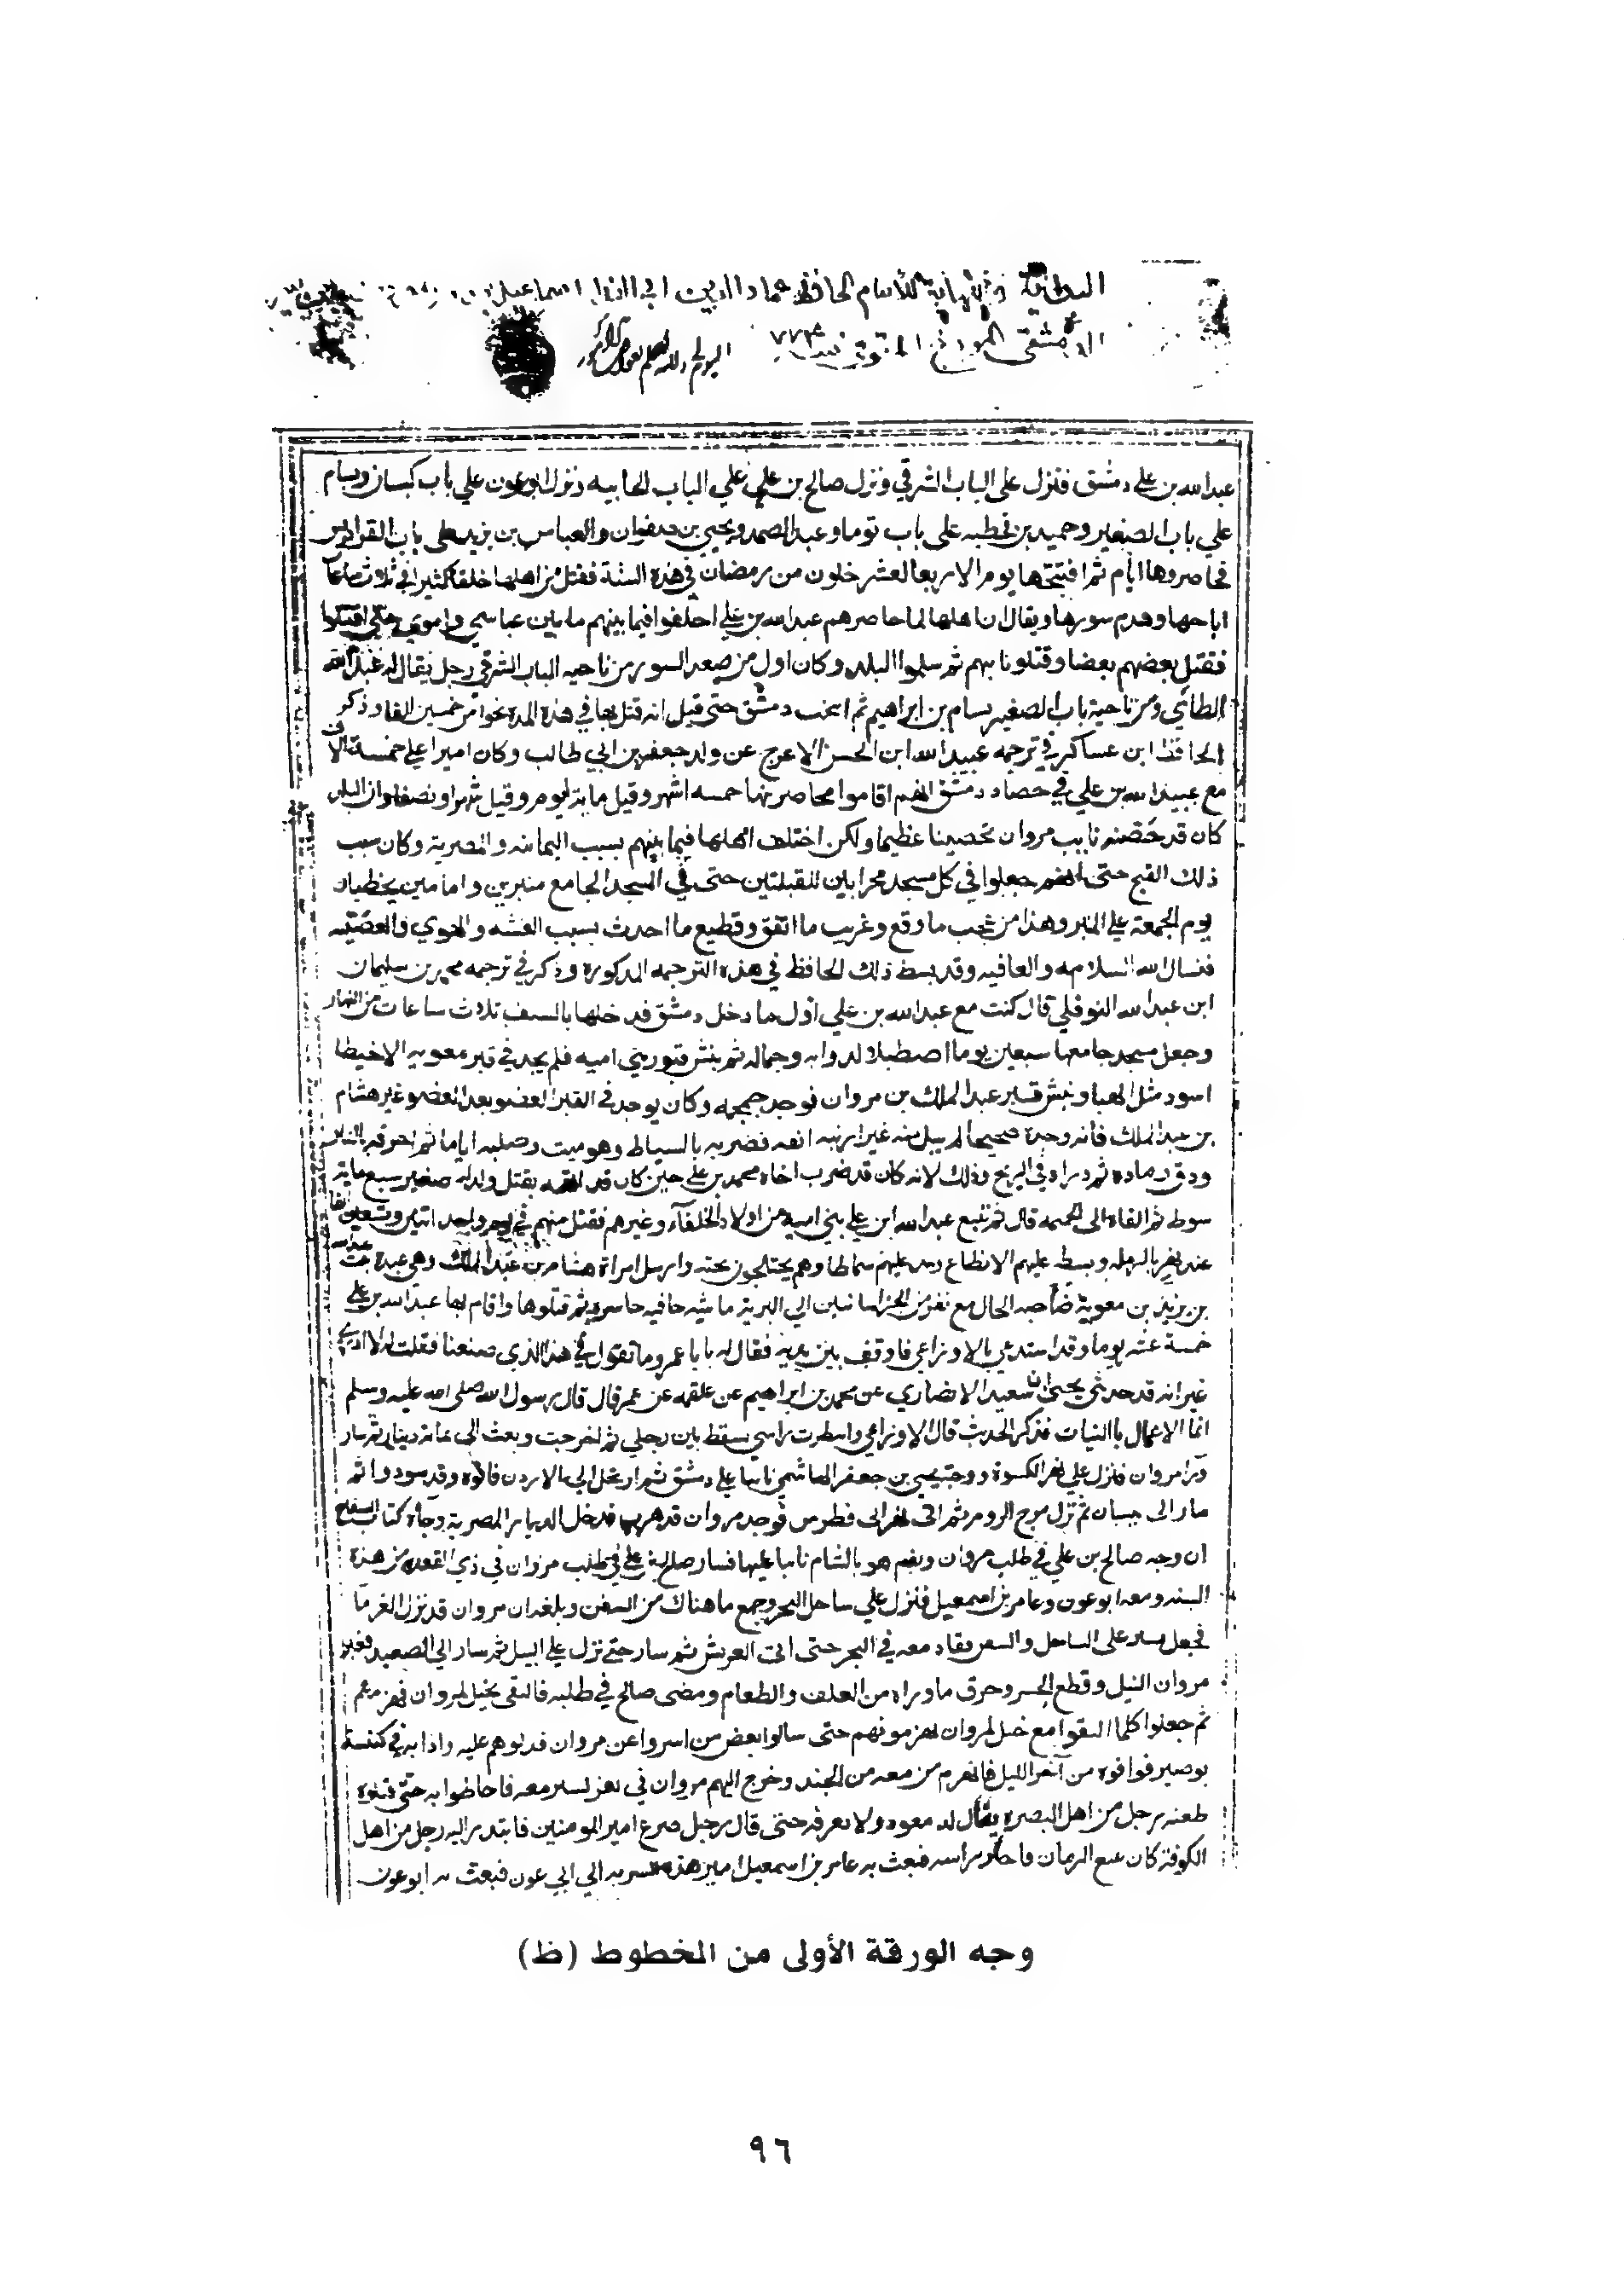 البداية والنهاية للامام الحافظ عماد الدين ابي الفدا اسماعيل
الدمشقي المورخ المتوفى سنة ٧٧٤
عبدالله بن علي دمشق فنزل على الباب الشرقي ونزل صالح بن علي علي الباب الجابيه ونزل ابوعون علي باب كيسان وبسام
علي باب الصغير وحميد بن قحطبه على باب توما وعبد الصمد ويحيى بن صفوان والعباس بن يزيد على باب الفراديس
فحاصروها ايام ثم افتتحها يوم الاربعا لعشر خلون من رمضان في هذه السنة فقتل من اهلها خلقا كثيرا في ثلاث ساعات
اباحها وهدم سورها ويقال ان اهلها لما حاصرهم عبدالله بن علي اختلفوا فيما بينهم ما بين عباسي واموي حتى اقتتلوا
فقتل بعضهم بعضا وقتلوا نايبهم ثم سلموا البلد وكان اول من صعد السور من ناحيه الباب الشرقي رجل يقال له عبدالله
الطائي ومن ناحية باب الصغير بسام بن ابراهيم ثم ابيحت دمشق حتى قيل انه قتل بها في هذه المدة نحوا من خمسين الفا وذكر
الحافظ ابن عساكر في ترجمه عبيد الله ابن الحسن الاعرج عن ولد جعفر بن ابي طالب وكان اميرا علي خمسة الاف
مع عبيد الله بن علي في حصار دمشق انهم اقاموا محاصريها خمسه اشهر وقيل مايه يوم وقيل شهرا ونصفا وان البلد
كان قد حصنه نايب مروان تحصينا عظيما ولكن اختلف اهلها فيما بينهم بسبب اليمانيه والمضرية وكان سبب
ذلك الفتح حتى انهم جعلوا في كل مسجد محرابين للقبلتين حتى في المسجد الجامع منبرين وامامين يخطبان
يوم الجمعة علي المنبر وهذا من عجب ما وقع وغريب ما اتفق وفظيع ما احدث بسبب الفتنه والهوي والعصبيه
فنسال الله السلامه والعافيه وقد بسط ذلك الحافظ في هذه الترجمه المدكورة وذكر في ترجمه محمد بن سليمان
ابن عبدالله النوفلي قال كنت مع عبدالله بن علي اول ما دخل دمشق فدخلها بالسيف ثلاث ساعات من النهار
وجعل مسجد جامعها سبعين يوما اصطبلا لدوابه وجماله ثم نبش قبور بني اميه فلم يجد في قبر معويه الا خيطا
اسود مثل الهبا ونبش قبر عبد الملك بن مروان فوجد جمجمه وكان يوجد في القبر العضو بعد العضو غير هشام
بن عبد الملك فانه وجده صحيحا لم يبل منه غير ارنبه انفه فضربه بالسياط وهو ميت وصلبه اياما ثم احرقه بالنار
ودق رماده ثم ذراه في الريح وذلك لانه كان قد ضرب اخاه محمد بن علي حين كان قد اتهمه بقتل ولد له صغير سبع مايه
سوط ثم القاه الى الحميمه قال ثم تتبع عبدالله ابن علي بني اميه من اولاد الخلفآء وغيرهم فقتل منهم في يوم واحد اثنين وتسعين الفا
عند نهر بالرمله وبسط عليهم الانطاع ومد عليهم سماطا وهم يختلجون تحته وارسل امراة هشام بن عبد الملك وهي عبدة بنت عبدالله
بن يزيد بن معوية صاحبه الخال مع نفر من الخراسانيين الي البرية ماشيه حافيه حاسره ثم قتلوها واقام بها عبدالله بن علي
خمسة عشر يوما وقد استدعي بالاوزاعي فاوقف بين يديه فقال له يا با عمرو ما تقول في هذا الذي صنعنا فقلت له لا ادري
غير انه قد حدثني يحيى ابن سعيد الانصاري عن محمد بن ابراهيم عن علقمه عن عمر قال قال رسول الله صلى الله عليه وسلم
انما الاعمال باالنيات فذكر الحديث قال الاوزاعي وانتظرت راسي يسقط بين رجلي ثم اخرجت وبعث الي بمائه دينار ثم سار
ورا مروان فنزل علي نهر الكسوة ووجه يحيى بن جعفر الهاشمي نايبا علي دمشق ثم ارتحل الي الاردن فاتوه وقد سودوا ثم
سار الى بيسان ثم نزل مرج الروم ثم اتى نهر ابي فطرس فوجد مروان قد هرب فدخل الديار المصرية وجآه كتاب السفاح
ان وجه صالح بن علي في طلب مروان ويقيم هو بالشام نايبا عليها فسار صالح بن علي في طلب مروان في ذي القعده من هذه
السنه ومعه ابوعون وعامر بن اسمعيل فنزل علي ساحل البحر وجمع ما هناك من السفن وبلغه ان مروان قد نزل الفرما
فجعل يسير على الساحل والسفن تقاد معه في البحر حتى اتى العريش ثم سار حتي نزل علي النيل ثم سار الي الصعيد فعبر
مروان النيل وقطع الجسر وحرق ما وراه من العلف والطعام ومضى صالح في طلبه فالتقى بخيل لمروان فهزمهم
ثم جعلوا كلما التقوا مع خيل لمروان يهزمونهم حتى سالوا بعض من اسروا عن مروان فدلوهم عليه واذا به في كنيسة
بوصير فوافوه من آخر الليل فانهزم من معه من الجند وخرج اليهم مروان في نفر يسير معه فاحاطوا به حتى قتلوه
طعنه رجل من اهل البصره يقال له معود ولا يعرفه حتى قال رجل صرع امير المومنين فابتدر اليه رجل من اهل
الكوفة كان يبيع الرمان فاحتز راسه فبعث به عامر بن اسمعيل امير هذه السريه الي ابي عون فبعث به ابوعون
وجه الورقة الأولى من المخطوط (ظ)
٩٦